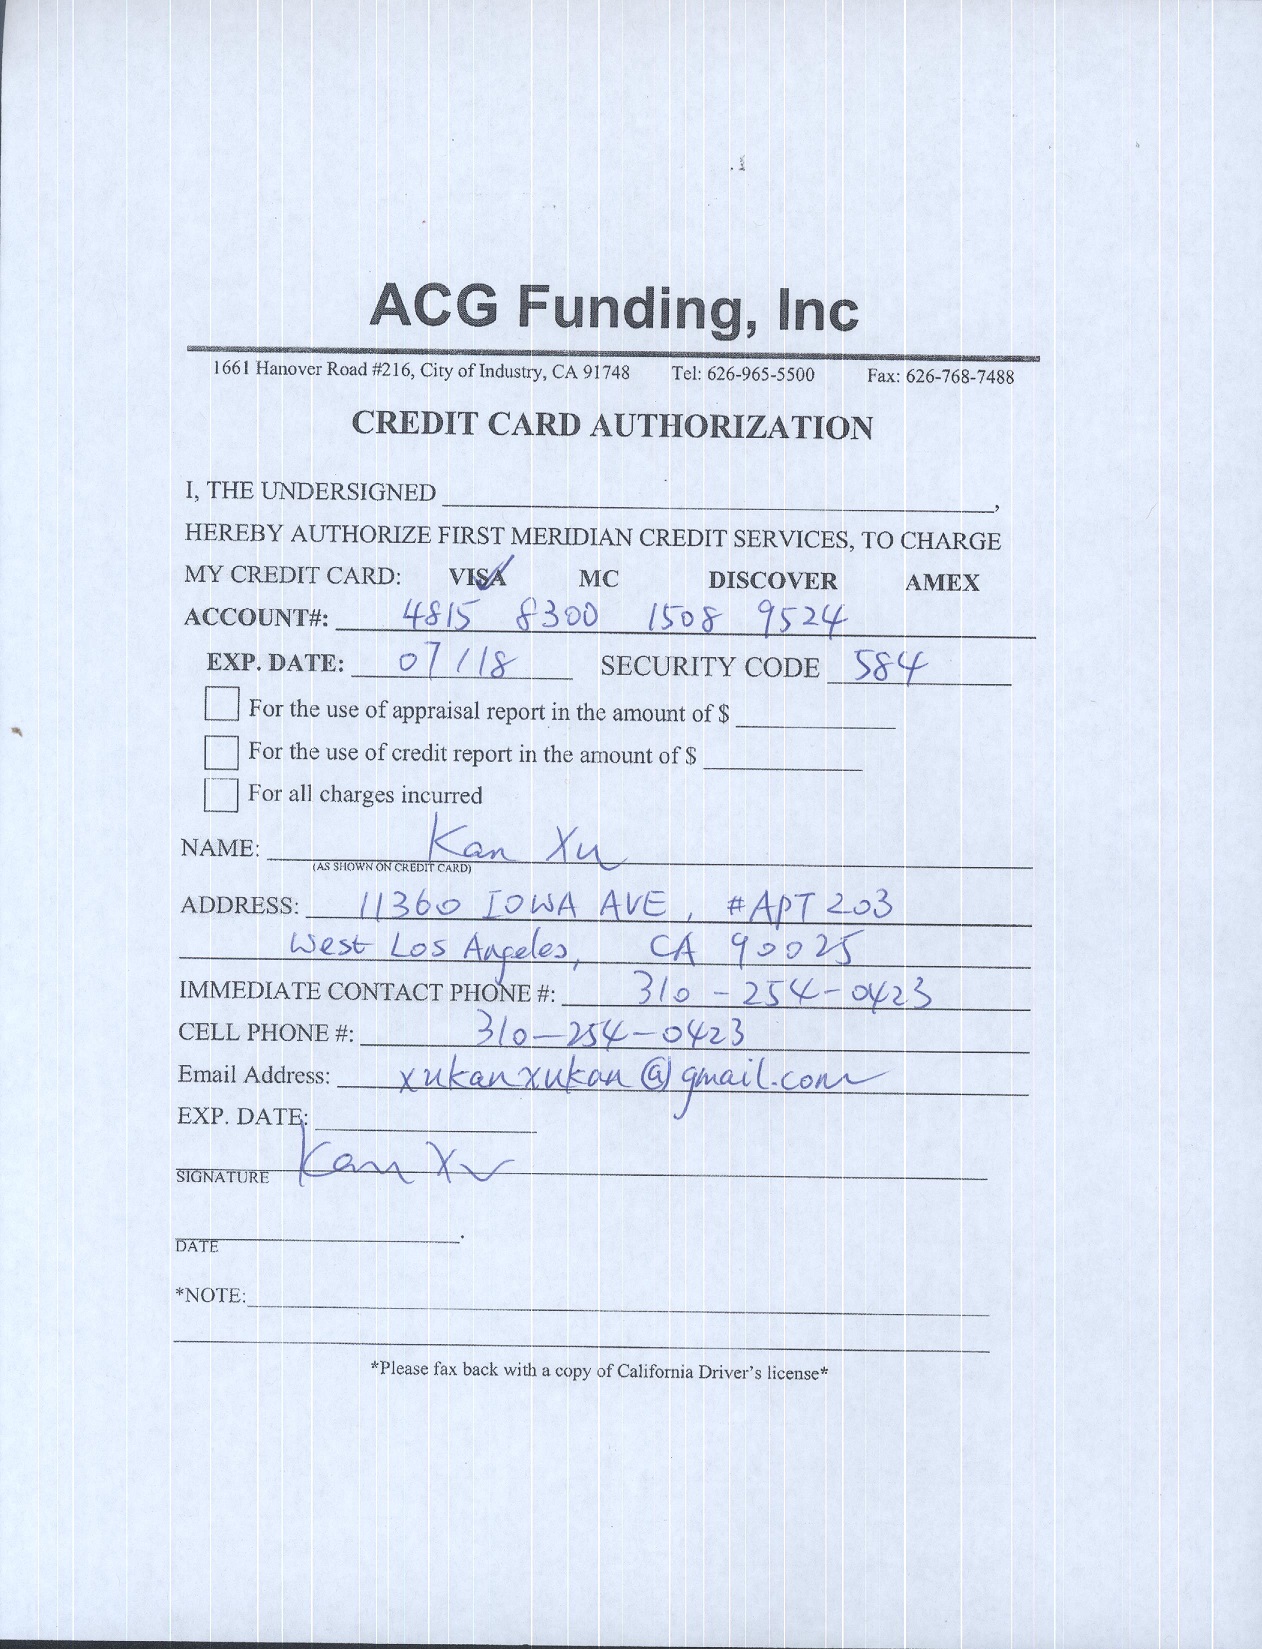 ACG Funding, Inc
1661 Hanover Road #216, City of Industry, CA 91748 Tel: 626-965-5500 Fax: 626-768-7488
CREDIT CARD AUTHORIZATION
I, THE UNDERSIGNED ,
HEREBY AUTHORIZE FIRST MERIDIAN CREDIT SERVICES, TO CHARGE
MY CREDIT CARD: VISA MC DISCOVER AMEX
ACCOUNT#: 4815 8300 1508 9524
EXP. DATE: 07/18 SECURITY CODE 584
For the use of appraisal report in the amount of $
For the use of credit report in the amount of $
For all charges incurred
NAME: Kan Xu
(AS SHOWN ON CREDIT CARD)
ADDRESS: 11360 IOWA AVE, #APT 203
West Los Angeles, CA 90025
IMMEDIATE CONTACT PHONE #: 310-254-0423
CELL PHONE #: 310-254-0423
Email Address: xukanxukan@gmail.com
EXP. DATE:
SIGNATURE Kan Xu
DATE .
*NOTE:
*Please fax back with a copy of California Driver's license*